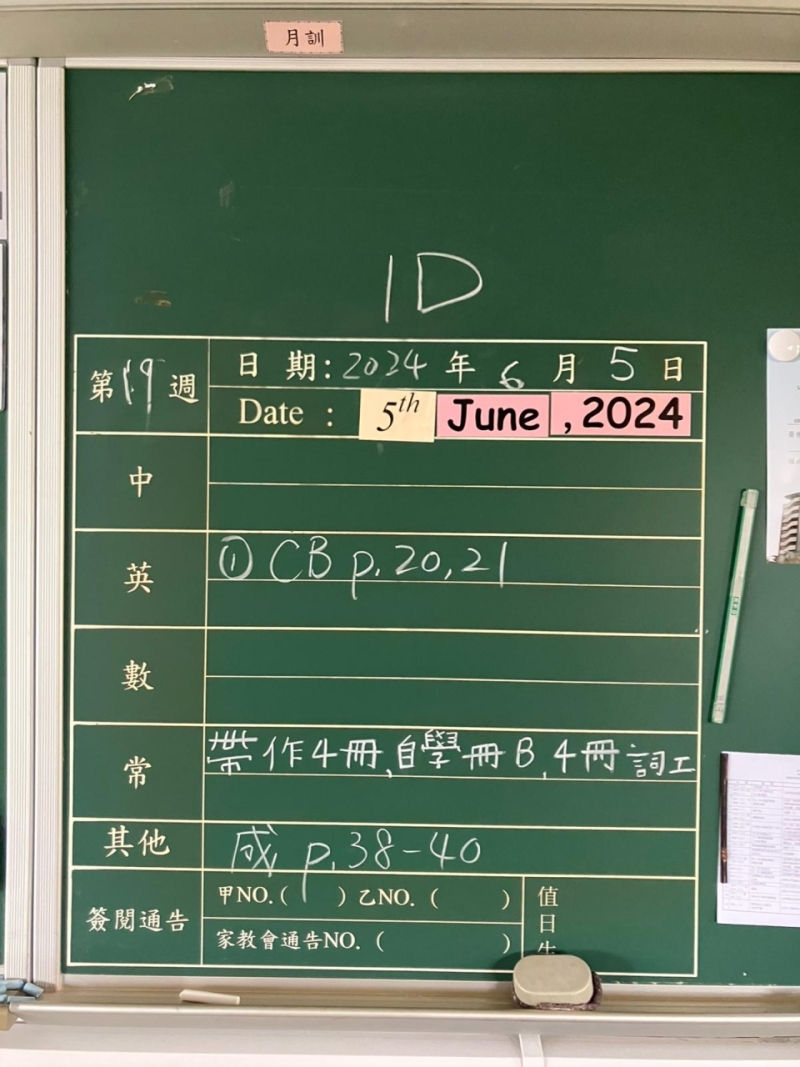 月訓
1D
第19週
日 期: 2024 年 6 月 5 日
Date : 5th June , 2024
中
英
① CB p.20,21
數
常
帶作4冊,自學冊B,4冊詞工
其他
成 p.38-40
簽閱通告
甲NO.( ) 乙NO. ( )
家教會通告NO. ( )
值日生